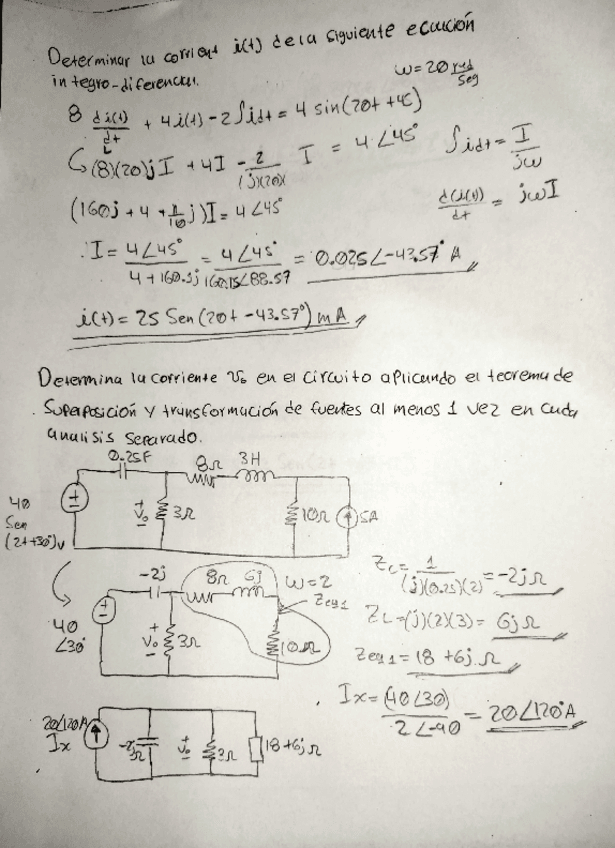 Determinar la corriente i(t) de la siguiente ecuación
integro-diferencial.
ω=20 rad/seg
8 di(t)/dt + 4i(t) - 2∫idt = 4 sin(20t +45)
(8)(20)jI + 4I - 2/(j)(20) I = 4∠45° ∫idt = I/jω
(160j + 4 + 1/10 j)I = 4∠45° d(i(t))/dt = jωI
∴ I = 4∠45°/4+160.1j = 4∠45°/160.15∠88.57 = 0.025∠-43.57° A
i(t) = 25 Sen(20t -43.57°) mA
Determina la corriente Vo en el circuito aplicando el teorema de
Superposición y transformación de fuentes al menos 1 vez en cada
analisis separado.
0.25F 8Ω 3H
40 Sen (2t+30°)v + Vo - 3Ω 10Ω 5A
-2j 8Ω 6j ω=2
Zeq1
40 ∠30° + Vo - 3Ω 10Ω
Zc = 1/(j)(0.25)(2) = -2jΩ
ZL = (j)(2)(3) = 6jΩ
Zeq1 = 18 +6j Ω
Ix = (40∠30)/2∠-90 = 20∠120°A
20∠120A Ix -2jΩ + Vo - 3Ω 18+6jΩ